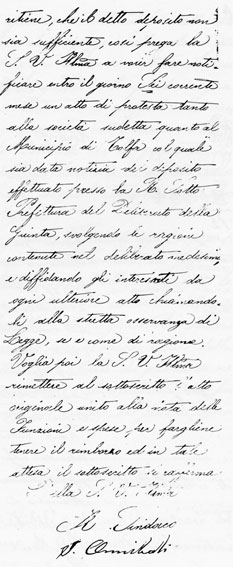 ritiene, che il detto deposito non
sia sufficiente, così prega la
S. V. Illma a voler fare noti-
ficare entro il giorno Sei corrente
mese un atto di protesta tanto
alla società sudetta quanto al
Municipio di Tolfa col quale
sia data notizia di deposito
effettuato presso la R. Sotto
Prefettura del Decreto della
Giunta, svolgendo le ragioni
contenute nel deliberato medesimo
e diffidando gli interessati da
ogni ulteriore atto chiamando-
li alla stretta osservanza di
Legge, se e come di ragione.
Voglia poi la S. V. Illma
rimettere al sottoscritto l'atto
originale unito alla nota delle
Funzioni e spese per fargliene
tenere il rimborso ed in tale
attesa il sottoscritto si rafferma
Della S. V. Illma
Il Sindaco